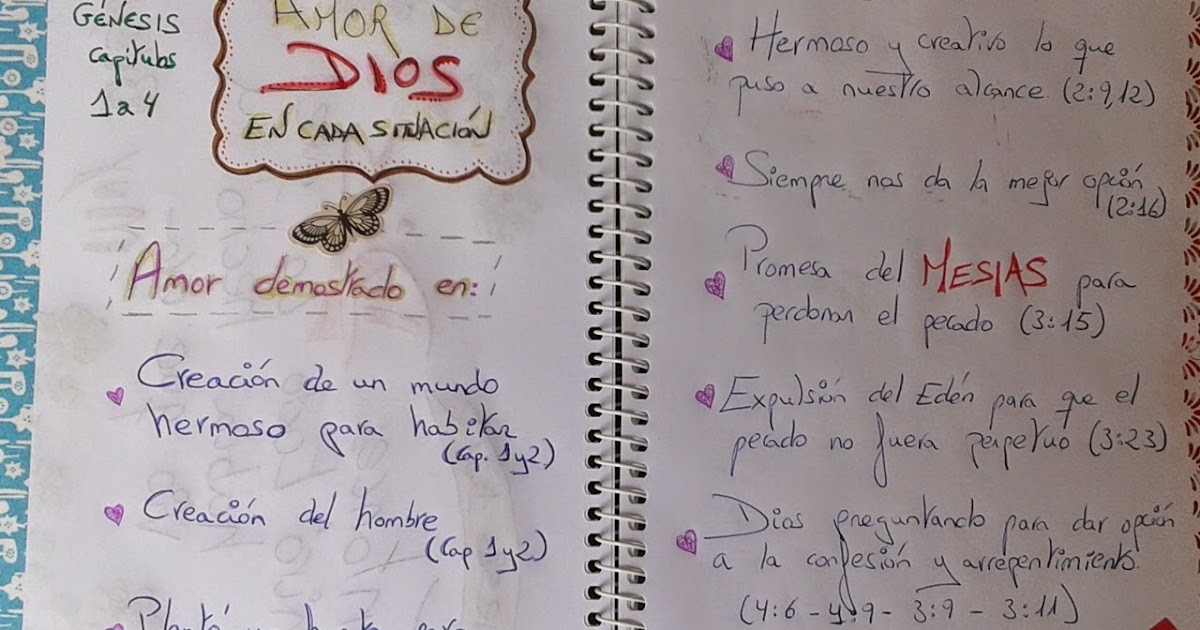 GÉNESIS
capítulos
1 a 4
AMOR DE
DIOS
EN CADA SITUACIÓN
Amor demostrado en:
Creación de un mundo
hermoso para habitar
(Cap. 1 y 2)
Creación del hombre
(Cap 1 y 2)
Plantó un huerto para
Hermoso y creativo lo que
puso a nuestro alcance (2:9,12)
Siempre nos da la mejor opción
(2:16)
Promesa del MESIAS para
perdonar el pecado (3:15)
Expulsión del Edén para que el
pecado no fuera perpetuo (3:23)
Dios preguntando para dar opción
a la confesión y arrepentimiento.
(4:6 - 4:9 - 3:9 - 3:11)